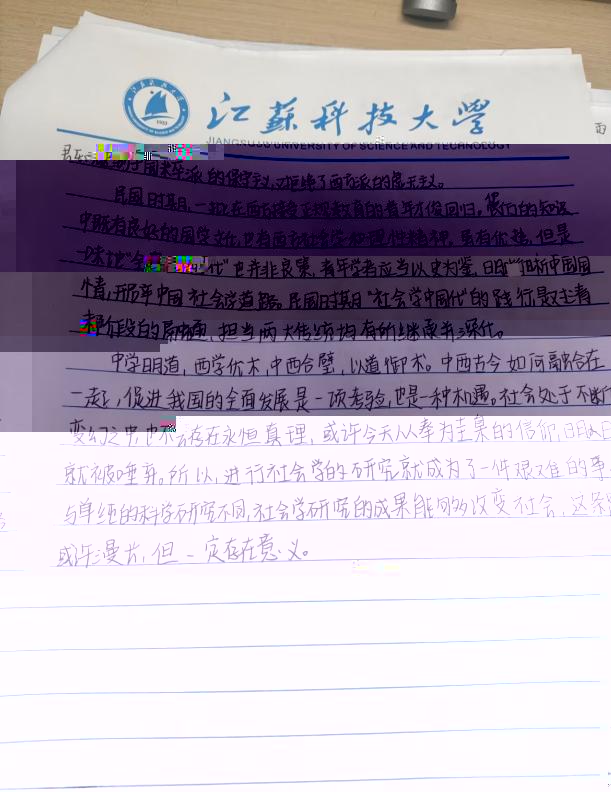 江苏科技大学
JIANGSU UNIVERSITY OF SCIENCE AND TECHNOLOGY
的保守主义,又拒绝了西方派的虚无主义。
民国时期,一批在西方接受正规教育的青年才俊回归。他们的知识
中既有良好的国学文化,也有西方社会学和理性精神,虽有优越,但是
一味地"全 化"也并非良策,青年学者应当以史为鉴,日 中国国
情,开辟中国社会学道路。民国时期"社会学中国化"的践行,是对青
年段的 ,担当两大传统均有所继承并深化。
中学明道,西学优术,中西合璧,以道御术。中西古今如何融合在
一起,促进我国的全面发展是一项考验,也是一种机遇。社会处于不断
变幻之中,也不会存在永恒真理,或许今天人人奉为圭臬的信仰,明日
就被唾弃。所以,进行社会学的研究就成为了一件艰难的事
与单纯的科学研究不同,社会学研究的成果能够改变社会,这条
或许漫长,但一定存在意义。